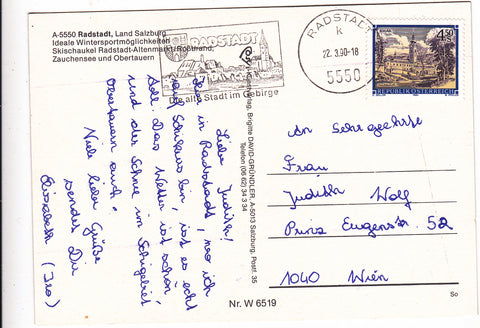 A-5550 Radstadt, Land Salzburg
Ideale Wintersportmöglichkeiten
Skischaukel Radstadt-Altenmarkt-Roßbrand,
Zauchensee und Obertauern
RADSTADT
Die alte Stadt im Gebirge
RADSTADT
k
22.3.90-18
5550
4.50
REPUBLIK ÖSTERREICH
Liebe Judith!
in Radstadt, wo ich
auf Schikurs bin, ist es echt
toll. Das Wetter ist schön
und der Schnee im Schigebiet
Obertauern auch.
Viele liebe Grüße
sendet Dir
Elisabeth (Iso)
Verlag, Brigitte DAVID-GRÜNDLER, A-5033 Salzburg, Postf. 35
Telefon (06 62) 34 3 34
An Sehrgeehrte
Frau
Judith Wolf
Prinz Eugenstr. 52
1040 Wien
Nr. W 6519
So